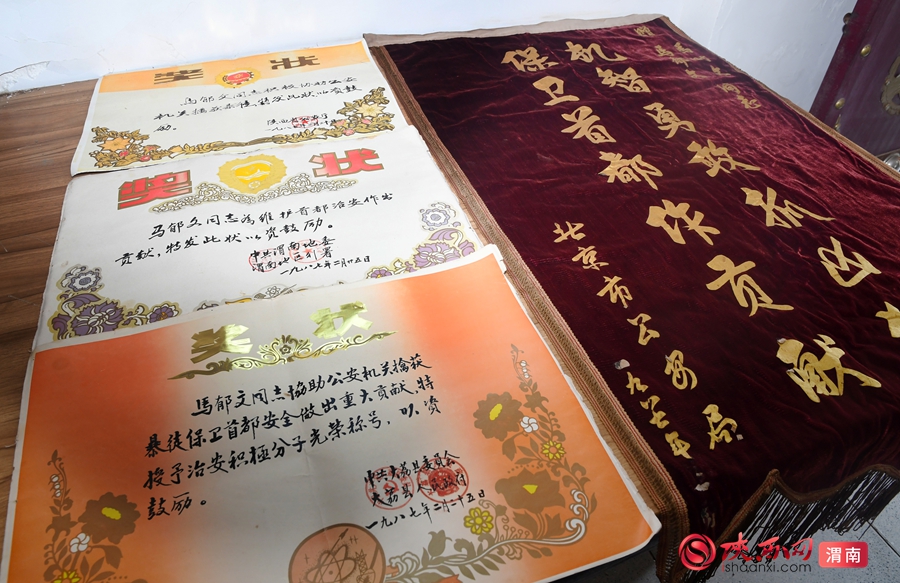 奖状
马郁文同志积极协助公安
励。
奖状
马郁文同志为维护首都治安作出
贡献,特发此状以资鼓励。
中共渭南地委
渭南地区行署
一九八七年二月廿五日
奖状
马郁文同志协助公安机关擒获
暴徒保卫首都安全做出重大贡献,特
授予治安积极分子光荣称号,以资
鼓励。
中共大荔县委员会
大荔县人民政府
一九八七年二月二十五日
赠
机智勇敢抓凶
保卫首都作贡献
北京市公安局
一九八七年
陕西网
shaanxi.com
渭南